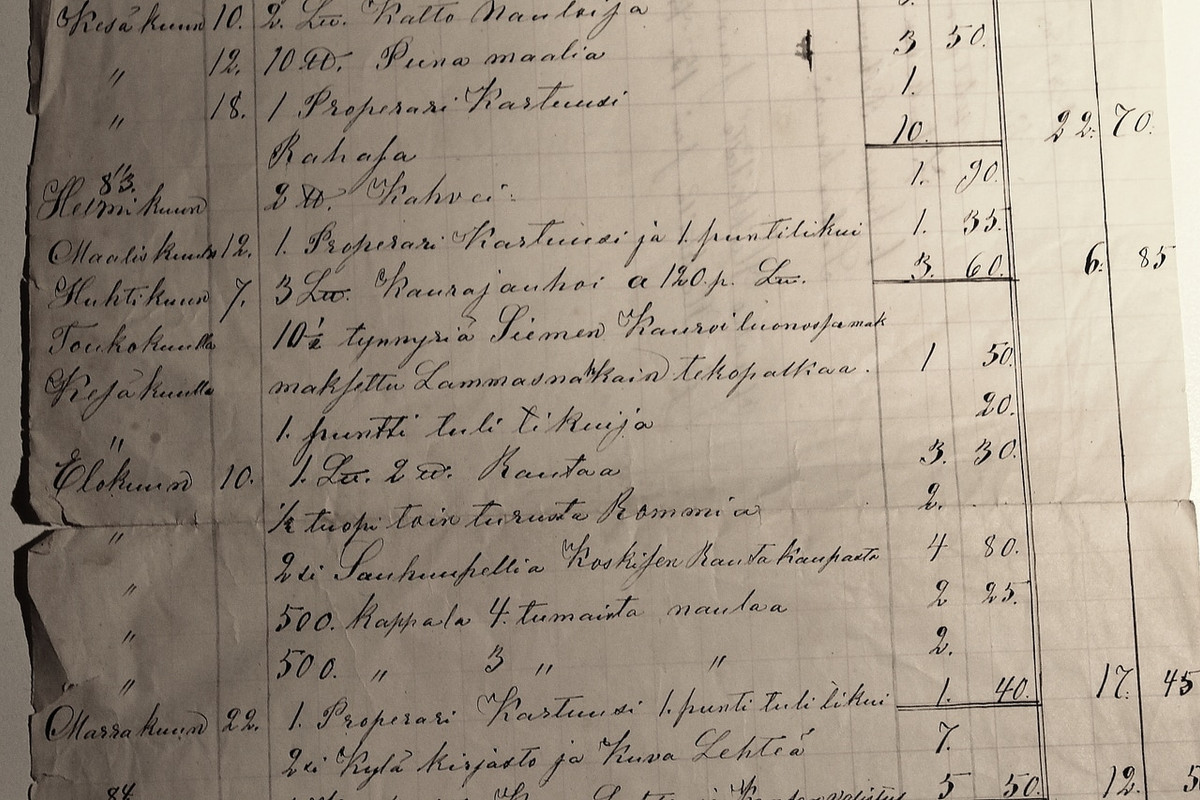 Kesäkuun 10. 2. Lu. Katto Nauloija
" 12. 10 ℔. Puna maalia 3 50.
" 18. 1 Properari Kartuusi 1.
Rahaſa 10. 22. 70.
83.
Helmikuun 2 ℔. Kahvei. 1. 90.
Maaliskuun 12. 1. Properari Kartuusi ja 1. puntilikui 1. 35.
Huhtikuun 7. 3 Lu. Kaurajauhoi a 120.p. Lu. 3. 60. 6. 85
Toukokuulla 10½ tynnyriä Siemen Kauroi luonosſa mak
Keſäkuulla makſettu Lammasna Kain tekopalkaa. 1 50.
" 1. puntti tuli tikuija 20.
Elokuun 10. 1. Lu. 2 ℔. Rautaa 3. 30.
" ½ tuopi toin turusta Rommia 2.
" 2si Sauhuupellia Koskiſen Rautakaupasta 4 80.
" 500. Kappala 4. tumaista naulaa 2 25.
" 500. " 3 " " 2.
Marrakuun 22. 1. Properari Kartuusi 1. punti tuli likui 1. 40. 17. 45
2si Kylä kirjasto ja Kuva Lehteä 7.
84. 5 50. 12. 5